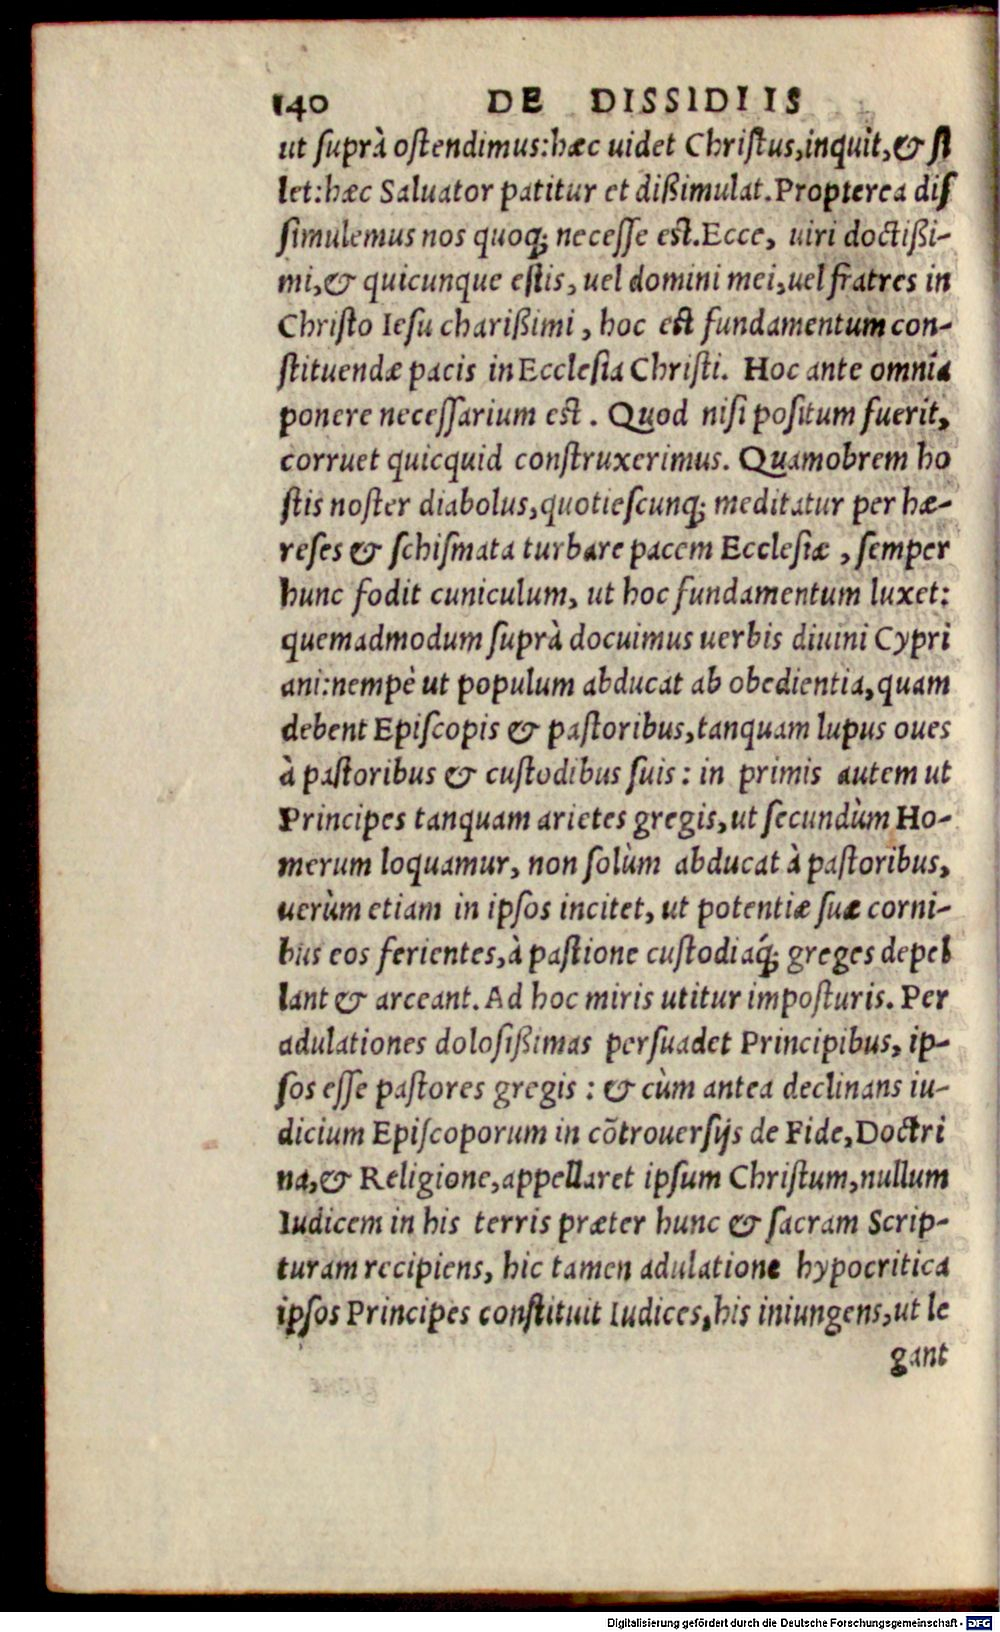 140 DE DISSIDIIS
ut ſuprà oſtendimus:hæc uidet Chriſtus,inquit,& ſi
let:hæc Saluator patitur et dißimulat.Propterea diſ
ſimulemus nos quoq; neceſſe eſt.Ecce, uiri doctißi-
mi,& quicunque eſtis, uel domini mei,uel fratres in
Chriſto Ieſu charißimi, hoc eſt fundamentum con-
ſtituendæ pacis in Eccleſia Chriſti. Hoc ante omnia
ponere neceſſarium eſt. Quod niſi poſitum fuerit,
corruet quicquid conſtruxerimus. Quamobrem ho
ſtis noſter diabolus,quotieſcunq; meditatur per hæ-
reſes & ſchiſmata turbare pacem Eccleſiæ, ſemper
hunc fodit cuniculum, ut hoc fundamentum luxet:
quemadmodum ſuprà docuimus uerbis diuini Cypri
ani:nempè ut populum abducat ab obedientia,quam
debent Epiſcopis & paſtoribus,tanquam lupus oues
à paſtoribus & cuſtodibus ſuis: in primis autem ut
Principes tanquam arietes gregis,ut ſecundùm Ho-
merum loquamur, non ſolùm abducat à paſtoribus,
uerùm etiam in ipſos incitet, ut potentiæ ſuæ corni-
bus eos ferientes,à paſtione cuſtodiaq́; greges depel
lant & arceant. Ad hoc miris utitur impoſturis. Per
adulationes doloſißimas perſuadet Principibus, ip-
ſos eſſe paſtores gregis: & cùm antea declinans iu-
dicium Epiſcoporum in cõtrouerſijs de Fide,Doctri
na,& Religione,appellaret ipſum Chriſtum,nullum
Iudicem in his terris præter hunc & ſacram Scrip-
turam recipiens, hic tamen adulatione hypocritica
ipſos Principes conſtituit Iudices,his iniungens,ut le
gant
Digitalisierung gefördert durch die Deutsche Forschungsgemeinschaft - DFG